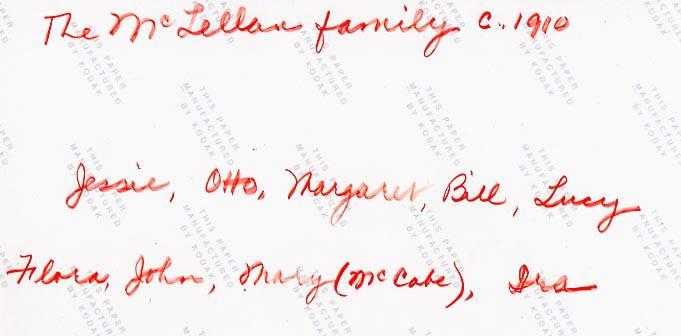 The McLellan family c. 1910
Jessie, Otto, Margaret, Bill, Lucy
Flora, John, Mary (McCabe), Ira
THIS PAPER
MANUFACTURED
BY KODAK